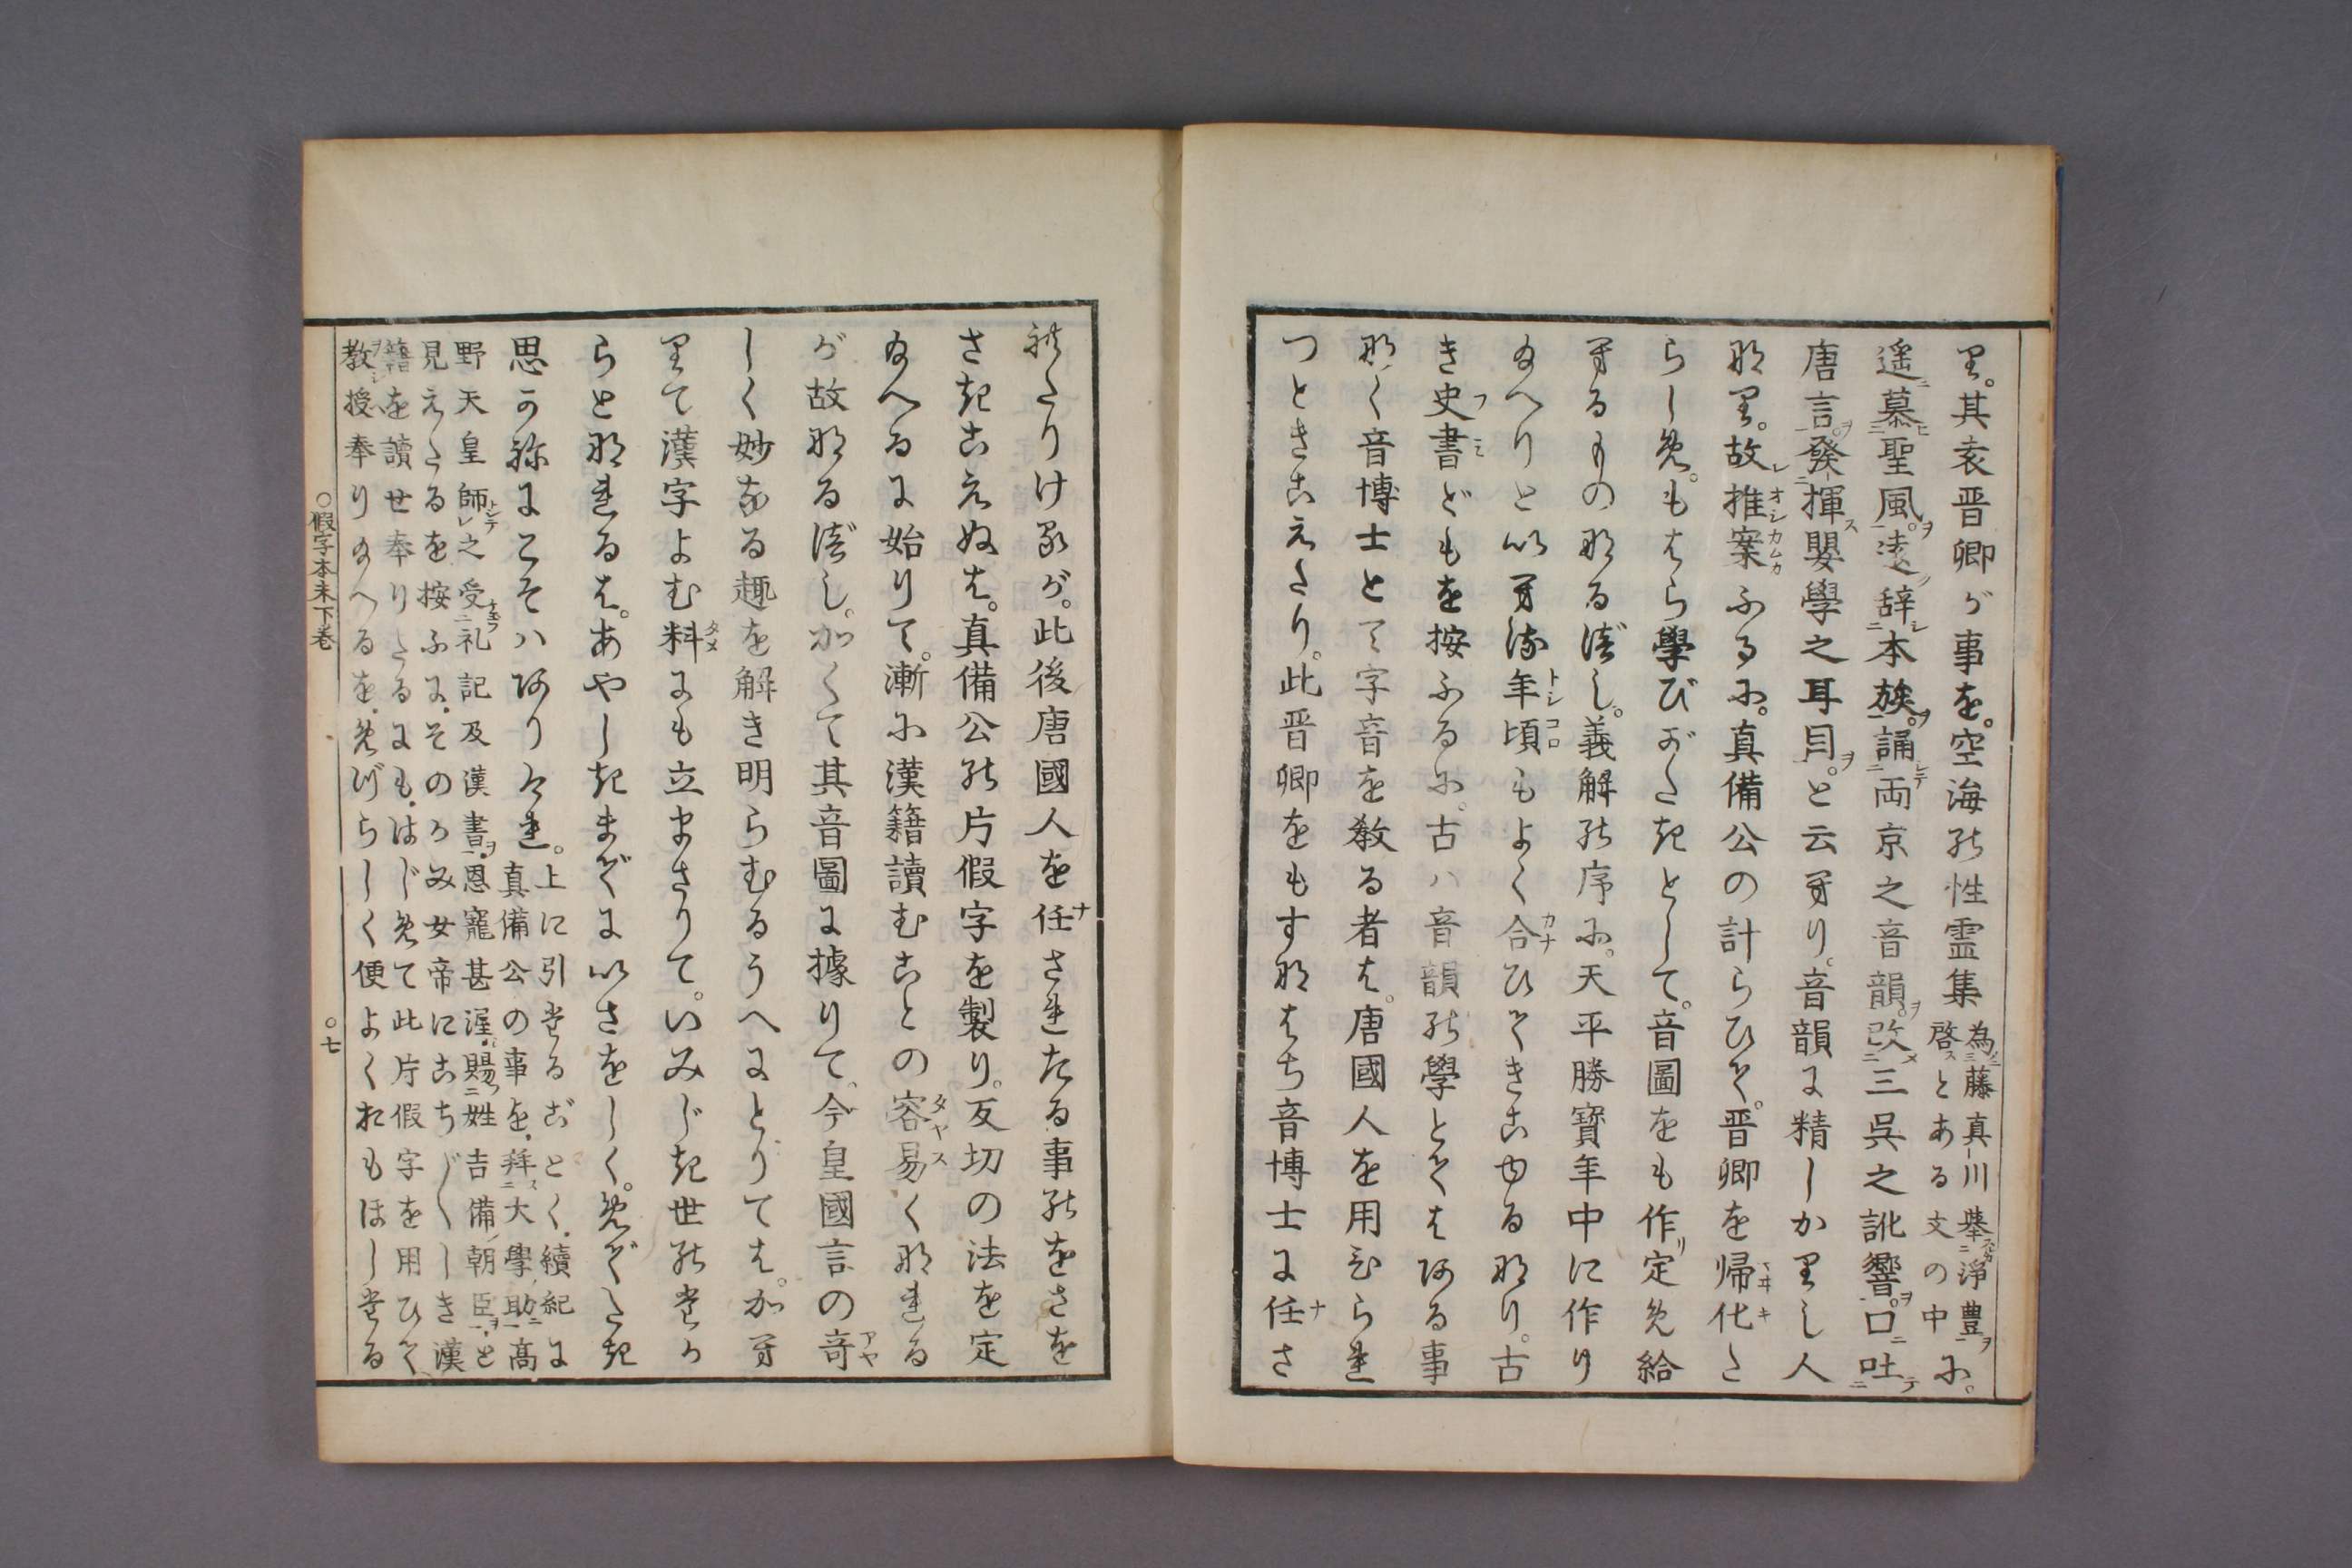 里。其袁晋卿が事を。空海能性霊集 為藤真川挙淨豊
啓とある文の中尓。
遥慕聖風。遠辞本族。誦両京之音韻。改三呉之訛響。口吐
唐言。発揮嬰學之耳目。と云有り。音韻に精しか里し人
那里。故推案ふる尓。真備公の計らひ尓て。晋卿を帰化た
らしめ。もはら學びがたきとして。音圖をも作定め給
有るものなるべし。義解能序尓。天平勝寶年中に作り
給へりと以有流年頃もよく合ひてきこゆる那り。古
き史書どもを按ふる尓。古ハ音韻能學とてはある事
那く音博士とて字音を教る者は。唐國人を用ひられ
つときこえたり。此晋卿をもすなはち音博士に任さ
れたりけるが。此後唐國人を任されたる事能をさを
さきこえぬは。真備公能片假字を製り。反切の法を定
給へるに始りて。漸尓漢籍讀むことの容易くなれる
が故なるべし。かくて其音圖に據りて。今皇國言の竒
しく妙なる趣を解き明らむるうへにとりては。か有
里て漢字よむ料にも立まさりて。いみじき世能たか
らとなれるは。あやしきまでにいさをしく。めでたき
思かねにこそハありけれ。上に引たるごとく。續紀に
真備公の事を。拜大學助高
野天皇師之受礼記及漢書。恩寵甚渥。賜姓吉備朝臣。と
見えたるを按ふに。そのかみ女帝にこちごちしき漢
籍を讀せ奉りたるにも。はじめて此片假字を用ひて
教授奉り給へるを。めづらしく便よくおもほしたる
○假字本末下巻
○七